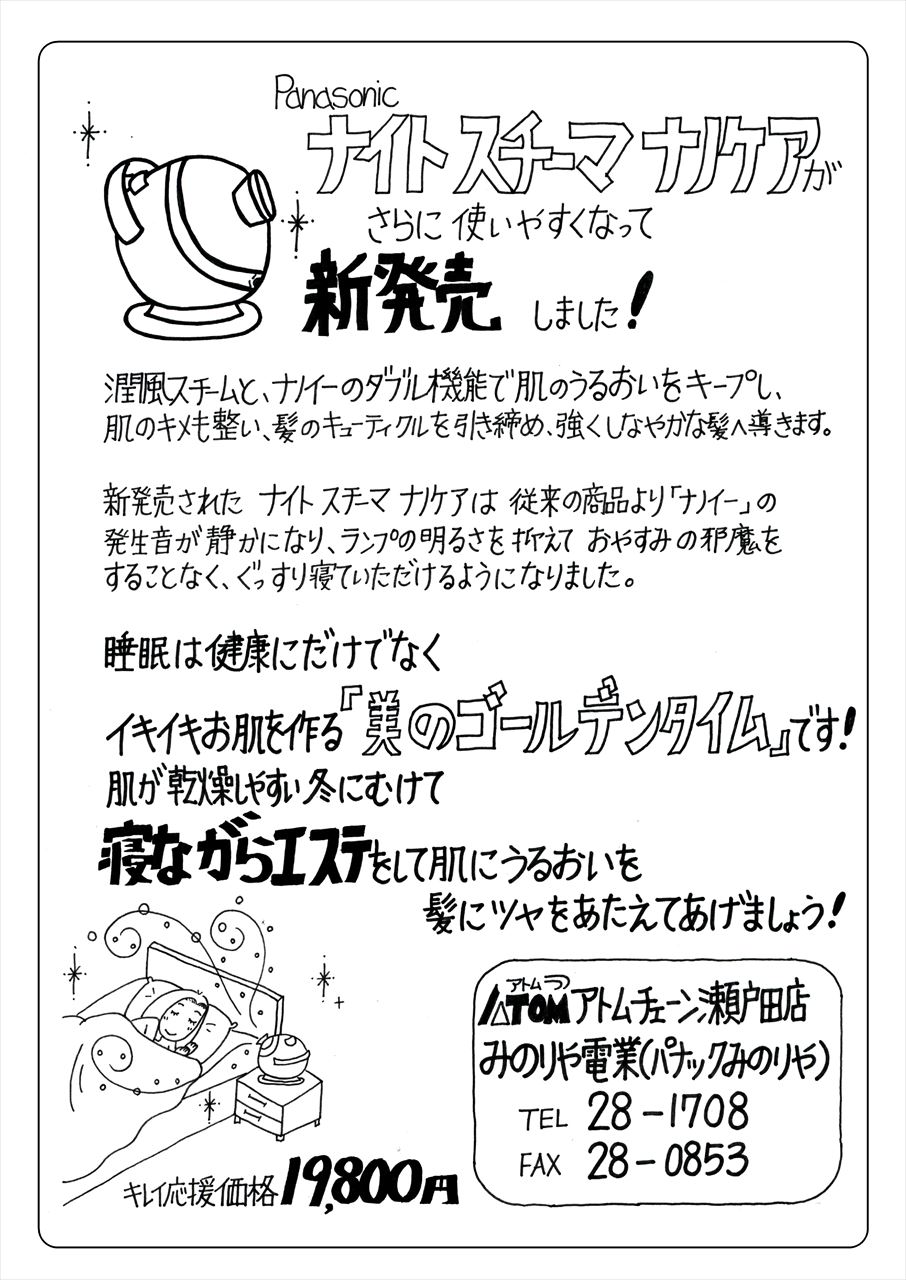 Panasonic
ナイトスチーマ ナノケアが
さらに使いやすくなって
新発売 しました!
潤風スチームと、ナノイーのダブル機能で肌のうるおいをキープし、
肌のキメも整い、髪のキューティクルを引き締め、強くしなやかな髪へ導きます。
新発売された ナイトスチーマ ナノケアは 従来の商品より「ナノイー」の
発生音が静かになり、ランプの明るさを抑えて おやすみの邪魔を
することなく、ぐっすり寝ていただけるようになりました。
睡眠は健康にだけでなく
イキイキお肌を作る『美のゴールデンタイム』です!
肌が乾燥しやすい冬にむけて
寝ながらエステをして肌にうるおいを
髪にツヤをあたえてあげましょう!
アトム
ATOM アトムチェーン瀬戸田店
みのりや電業(パナックみのりや)
TEL 28-1708
FAX 28-0853
キレイ応援価格 19,800円